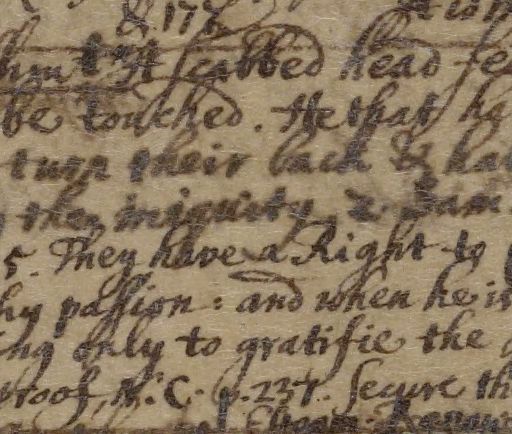 & 177
A scabbed head
be touched. He that ha
turn their back &
iniquity. 2. Sam.
5. They have a Right to
hy passion: and when he is
ing only to gratifie the
proof, N. C. p. 237. Secure th